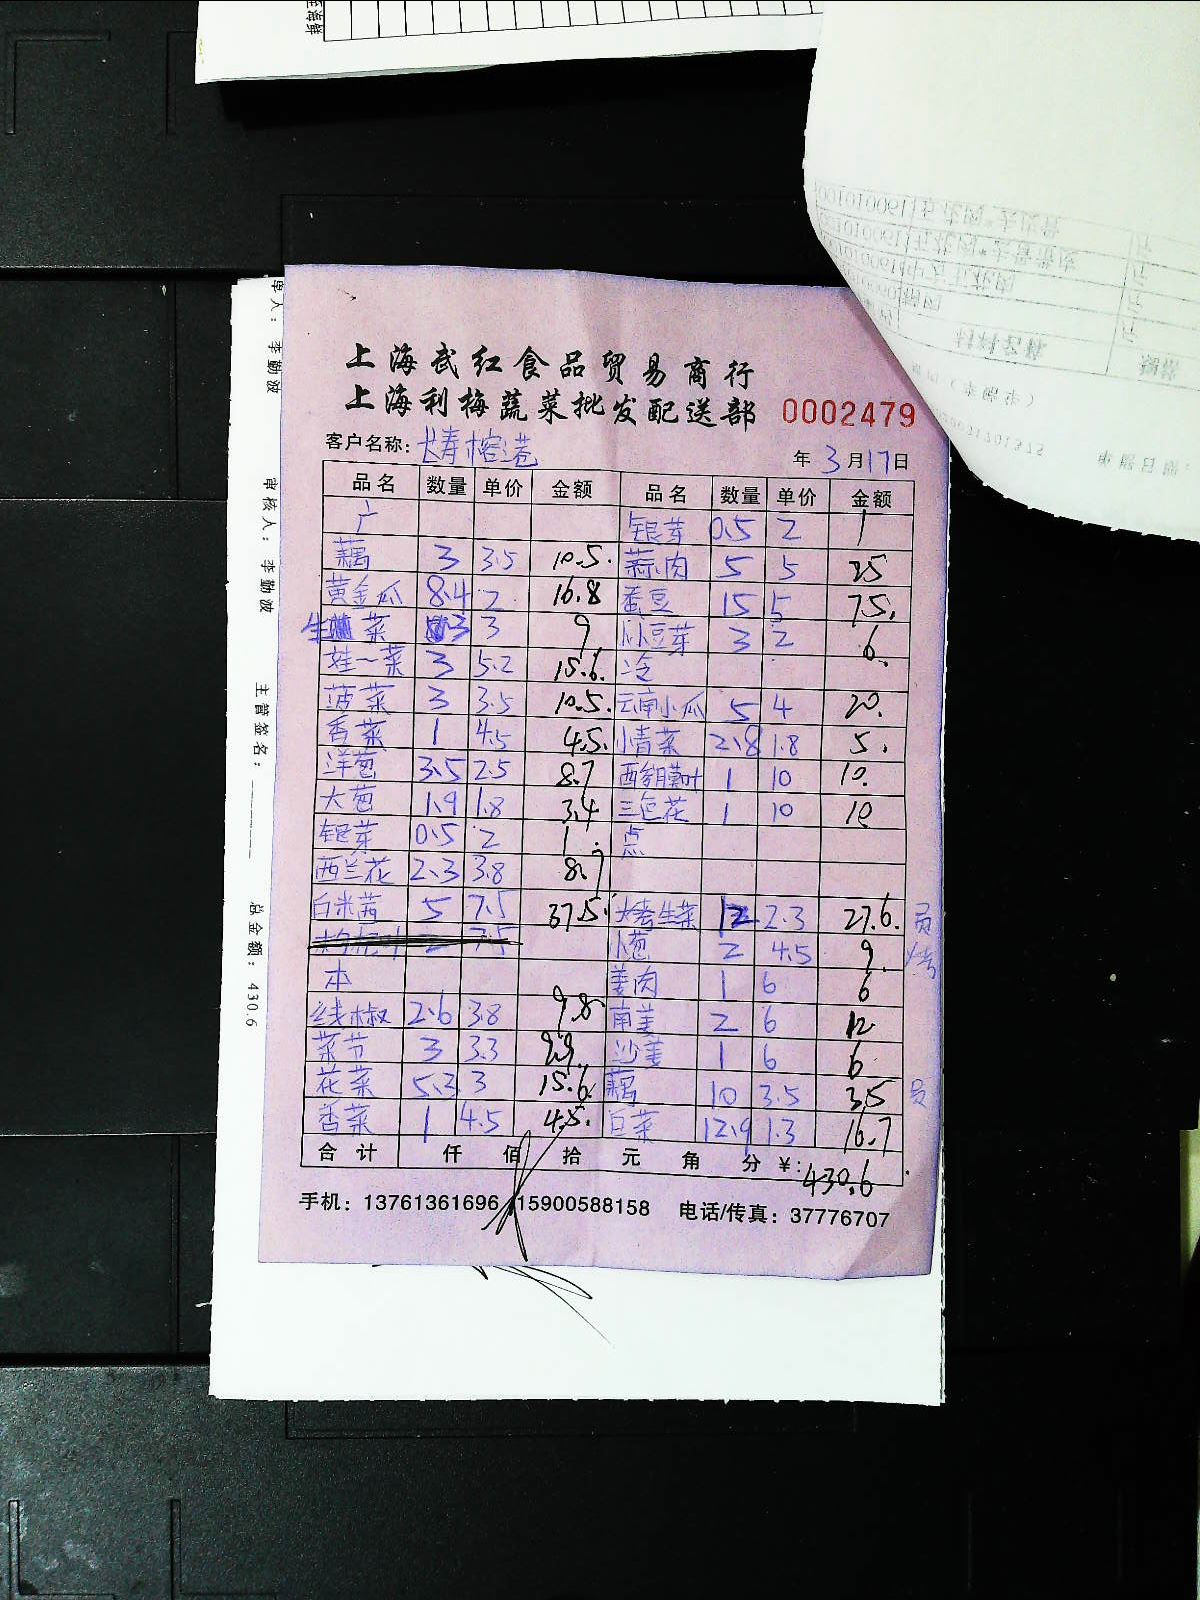 上海武红食品贸易商行
上海利梅蔬菜批发配送部 0002479
客户名称: 长寿榕港 年 3 月 17 日
品名 数量 单价 金额 品名 数量 单价 金额
广 银芽 0.5 2 1
藕 3 3.5 10.5 蒜肉 5 5 25
黄金瓜 8.4 2 16.8 蚕豆 15 5 75
生菜 3 3 9 小豆芽 3 2 6
娃一菜 3 5.2 15.6 冷
菠菜 3 3.5 10.5 云南小瓜 5 4 20
香菜 1 4.5 4.5 小青菜 2.8 1.8 5
洋葱 3.5 2.5 8.7 1 10 10
大葱 1.9 1.8 3.4 三色花 1 10 10
银芽 0.5 2 1 点
西兰花 2.3 3.8 8.7
白米茜 5 7.5 37.5 烤生菜 12 2.3 27.6 员
小葱 2 4.5 9 烤
本 姜肉 1 6 6
线椒 2.6 3.8 9.8 南姜 2 6 12
菜节 3 3.3 9.9 沙姜 1 6 6
花菜 5.3 3 15.6 藕 10 3.5 35 员
香菜 1 4.5 4.5 白菜 12.9 1.3 16.7
合计 仟 佰 拾 元 角 分 ¥: 430.6
手机: 13761361696 15900588158 电话/传真: 37776707
单人: 李勤波
审核人: 李勤波
主管签名:
总金额: 430.6